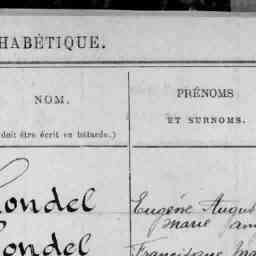 HABÉTIQUE.
NOM.
doit être écrit en bâtarde.)
PRÉNOMS
ET SURNOMS.
ondel
Eugène Augus
Marie
ondel